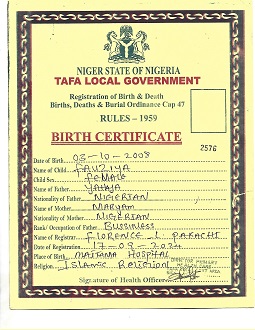 NIGER STATE OF NIGERIA
TAFA LOCAL GOVERNMENT
Registration of Birth & Death
Births, Deaths & Burial Ordinance Cap 47
RULES - 1959
BIRTH CERTIFICATE
2576
Date of Birth 03-10-2008
Name of Child FAUZIYA
Child Sex FEMALE
Name of Father YAHAYA
Nationality of Father NIGERIAN
Name of Mother MARYAM
Nationality of Mother NIGERIAN
Rank/ Occupation of Father BUSSINESS
Name of Registrar FLORENCE L. PAKACHI
Date of Registration 17-09-2024
Place of Birth MAITAMA HOSPITAL
Religion ISLAMIC RELIGION
Signature of Health Officer